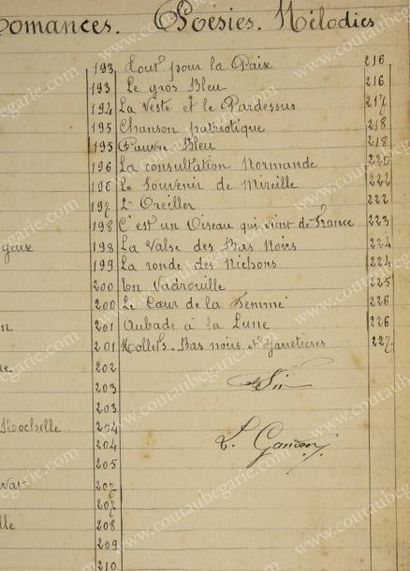 Romances. Poésies. Mélodies
193 Tout pour la Paix 216
193 Le gros Bleu 216
194 La Veste et le Pardessus 217
195 Chanson patriotique 218
195 Pauvre Bleu 218
196 La consultation Normande 220
196 Le Souvenir de Mireille 222
197 L'Oreiller 222
198 C'est un Oiseau qui vient de France 223
yeux 198 La Valse des Bas Noirs 224
199 La ronde des Nichons 224
200 En Vadrouille 225
200 Le Cœur de la Femme 226
201 Aubade à la Lune 226
201 Mollets. Bas noirs et Jarretières 227
202
203 Fin
203
Rochelle 204
204
205
207
207
208
209
210
www.coutaubegarie.com